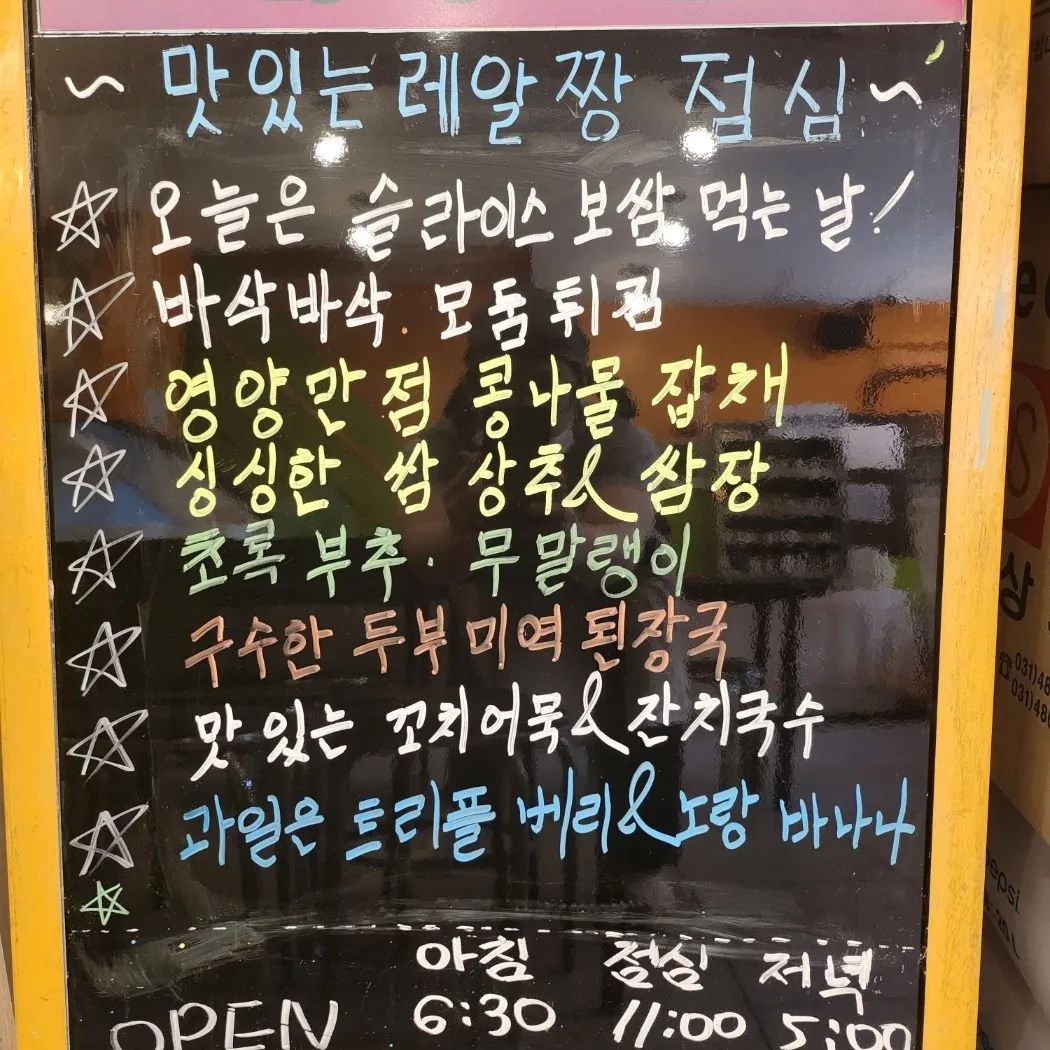 ~ 맛있는 레알짱 점심 ~
☆ 오늘은 슬라이스 보쌈 먹는 날!
☆ 바삭바삭. 모둠튀김
☆ 영양만점 콩나물 잡채
☆ 싱싱한 쌈 상추& 쌈장
☆ 초록 부추. 무말랭이
☆ 구수한 두부미역된장국
☆ 맛있는 꼬치어묵&잔치국수
☆ 과일은 트리플 베리&노랑 바나나
☆
아침 점심 저녁
OPEN 6:30 11:00 5:00
상
031)48
031)48
pepsi